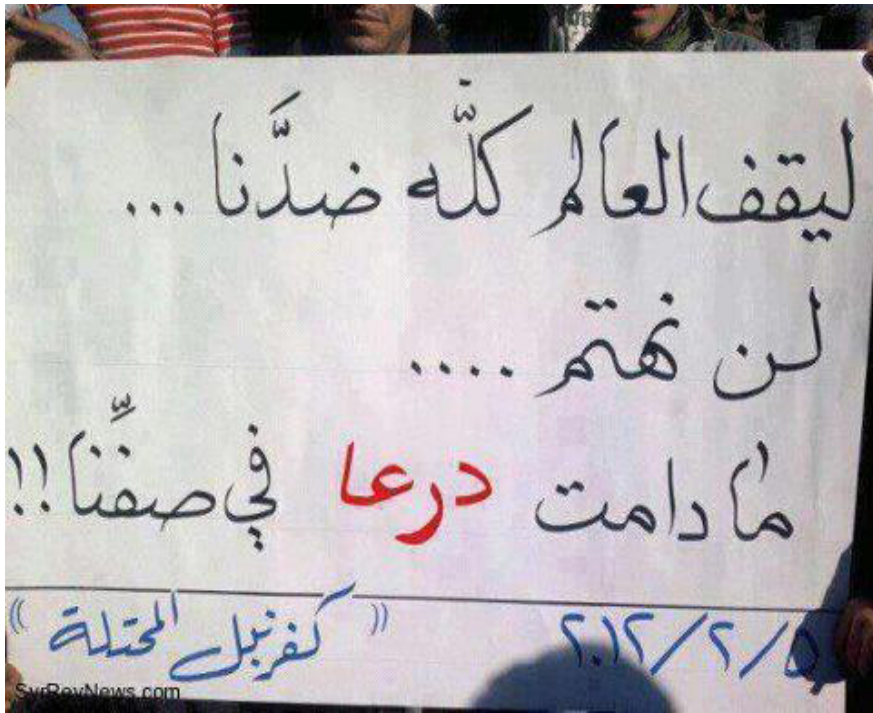 ليقف العالم كلّه ضدَّنا ...
لن نهتم ....
ما دامت درعا في صفِّنا !!
٢٠١٢/٢/٥ (( كفرنبل المحتلة ))
SyrRevNews.com